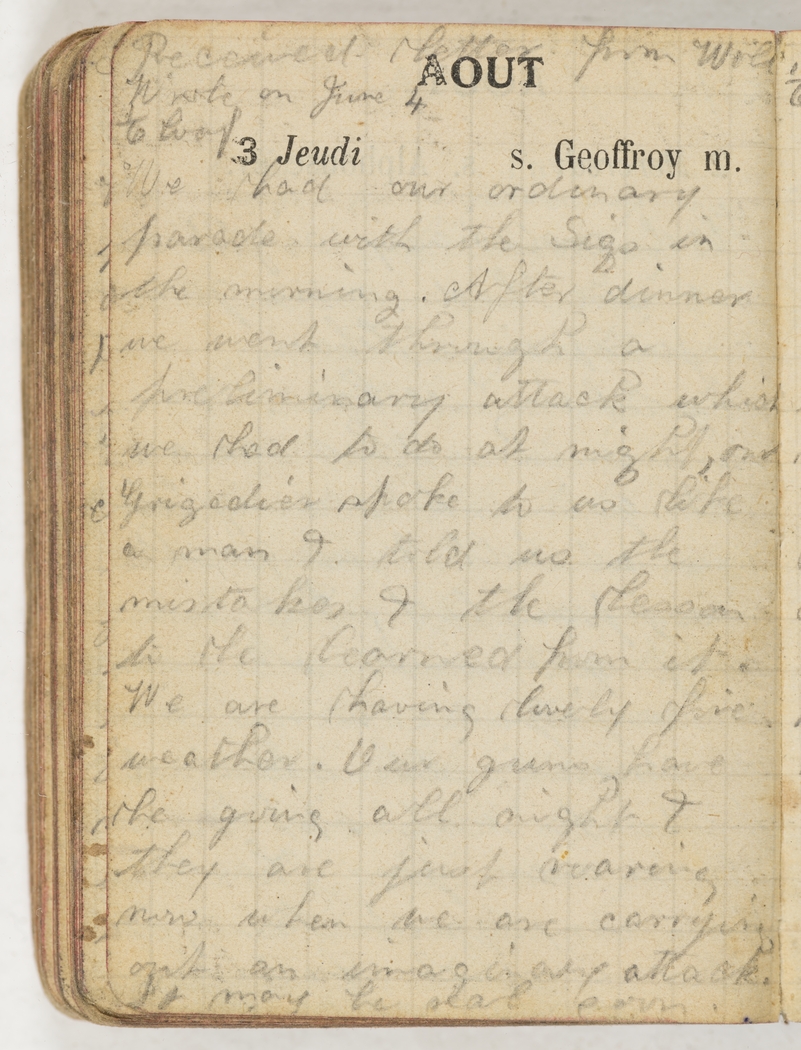 Received letter from Will
AOUT
Wrote on June 4
3 Jeudi s. Geoffroy m.
We had our ordinary
parade with the Sigs in
the morning. After dinner
we went through a
preliminary attack which
we had to do at night, our
Brigedier spoke to us like
a man & told us the
mistakes & the lesson
to be learned from it.
We are having lovely fine
weather. Our guns have
be going all night &
they are just roaring
now when we are carrying
out an imaginary attack.
It may be real soon.